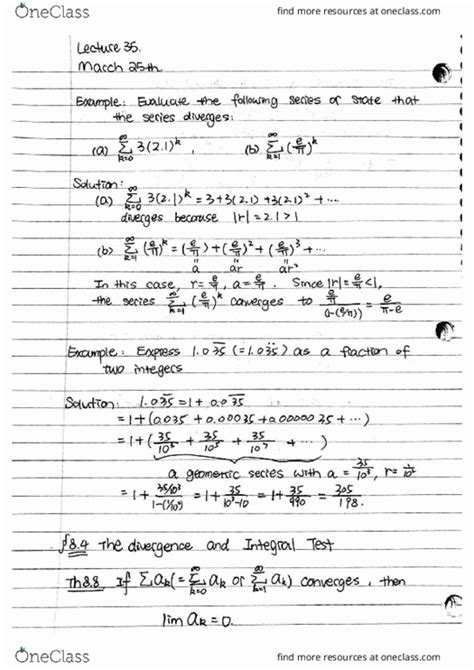 OneClass
find more resources at oneclass.com
Lecture 35.
March 25th
Example: Evaluate the following series or state that
the series diverges:
(a) ∞∑k=0 3(2.1)^k , (b) ∞∑k=1 (e/π)^k
Solution:
(a) ∞∑k=0 3(2.1)^k = 3+3(2.1)+3(2.1)²+...
diverges because |r|=2.1>1
(b) ∞∑k=1 (e/π)^k = (e/π)+(e/π)²+(e/π)³+...
" " "
a ar ar²
In this case, r=e/π, a=e/π. Since |r|=e/π<1,
the series ∞∑k=1 (e/π)^k converges to (e/π)/(1-(e/π)) = e/(π-e)
Example: Express 1.035 (=1.035) as a fraction of
two integers
Solution: 1.035 = 1+0.035
= 1+(0.035+0.00035+0.0000035+...)
= 1+(35/10³ + 35/10⁵ + 35/10⁷ + ...)
a geometric series with a = 35/10³, r = 1/10²
= 1+ (35/10³)/(1-(1/10²)) = 1+ 35/(10³-10) = 1+ 35/990 = 205/198.
§8.4 The divergence and Integral Test
Th8.8 If ∑ak(=∞∑k=0 ak or ∞∑k=1 ak) converges, then
lim ak=0.
OneClass
find more resources at oneclass.com